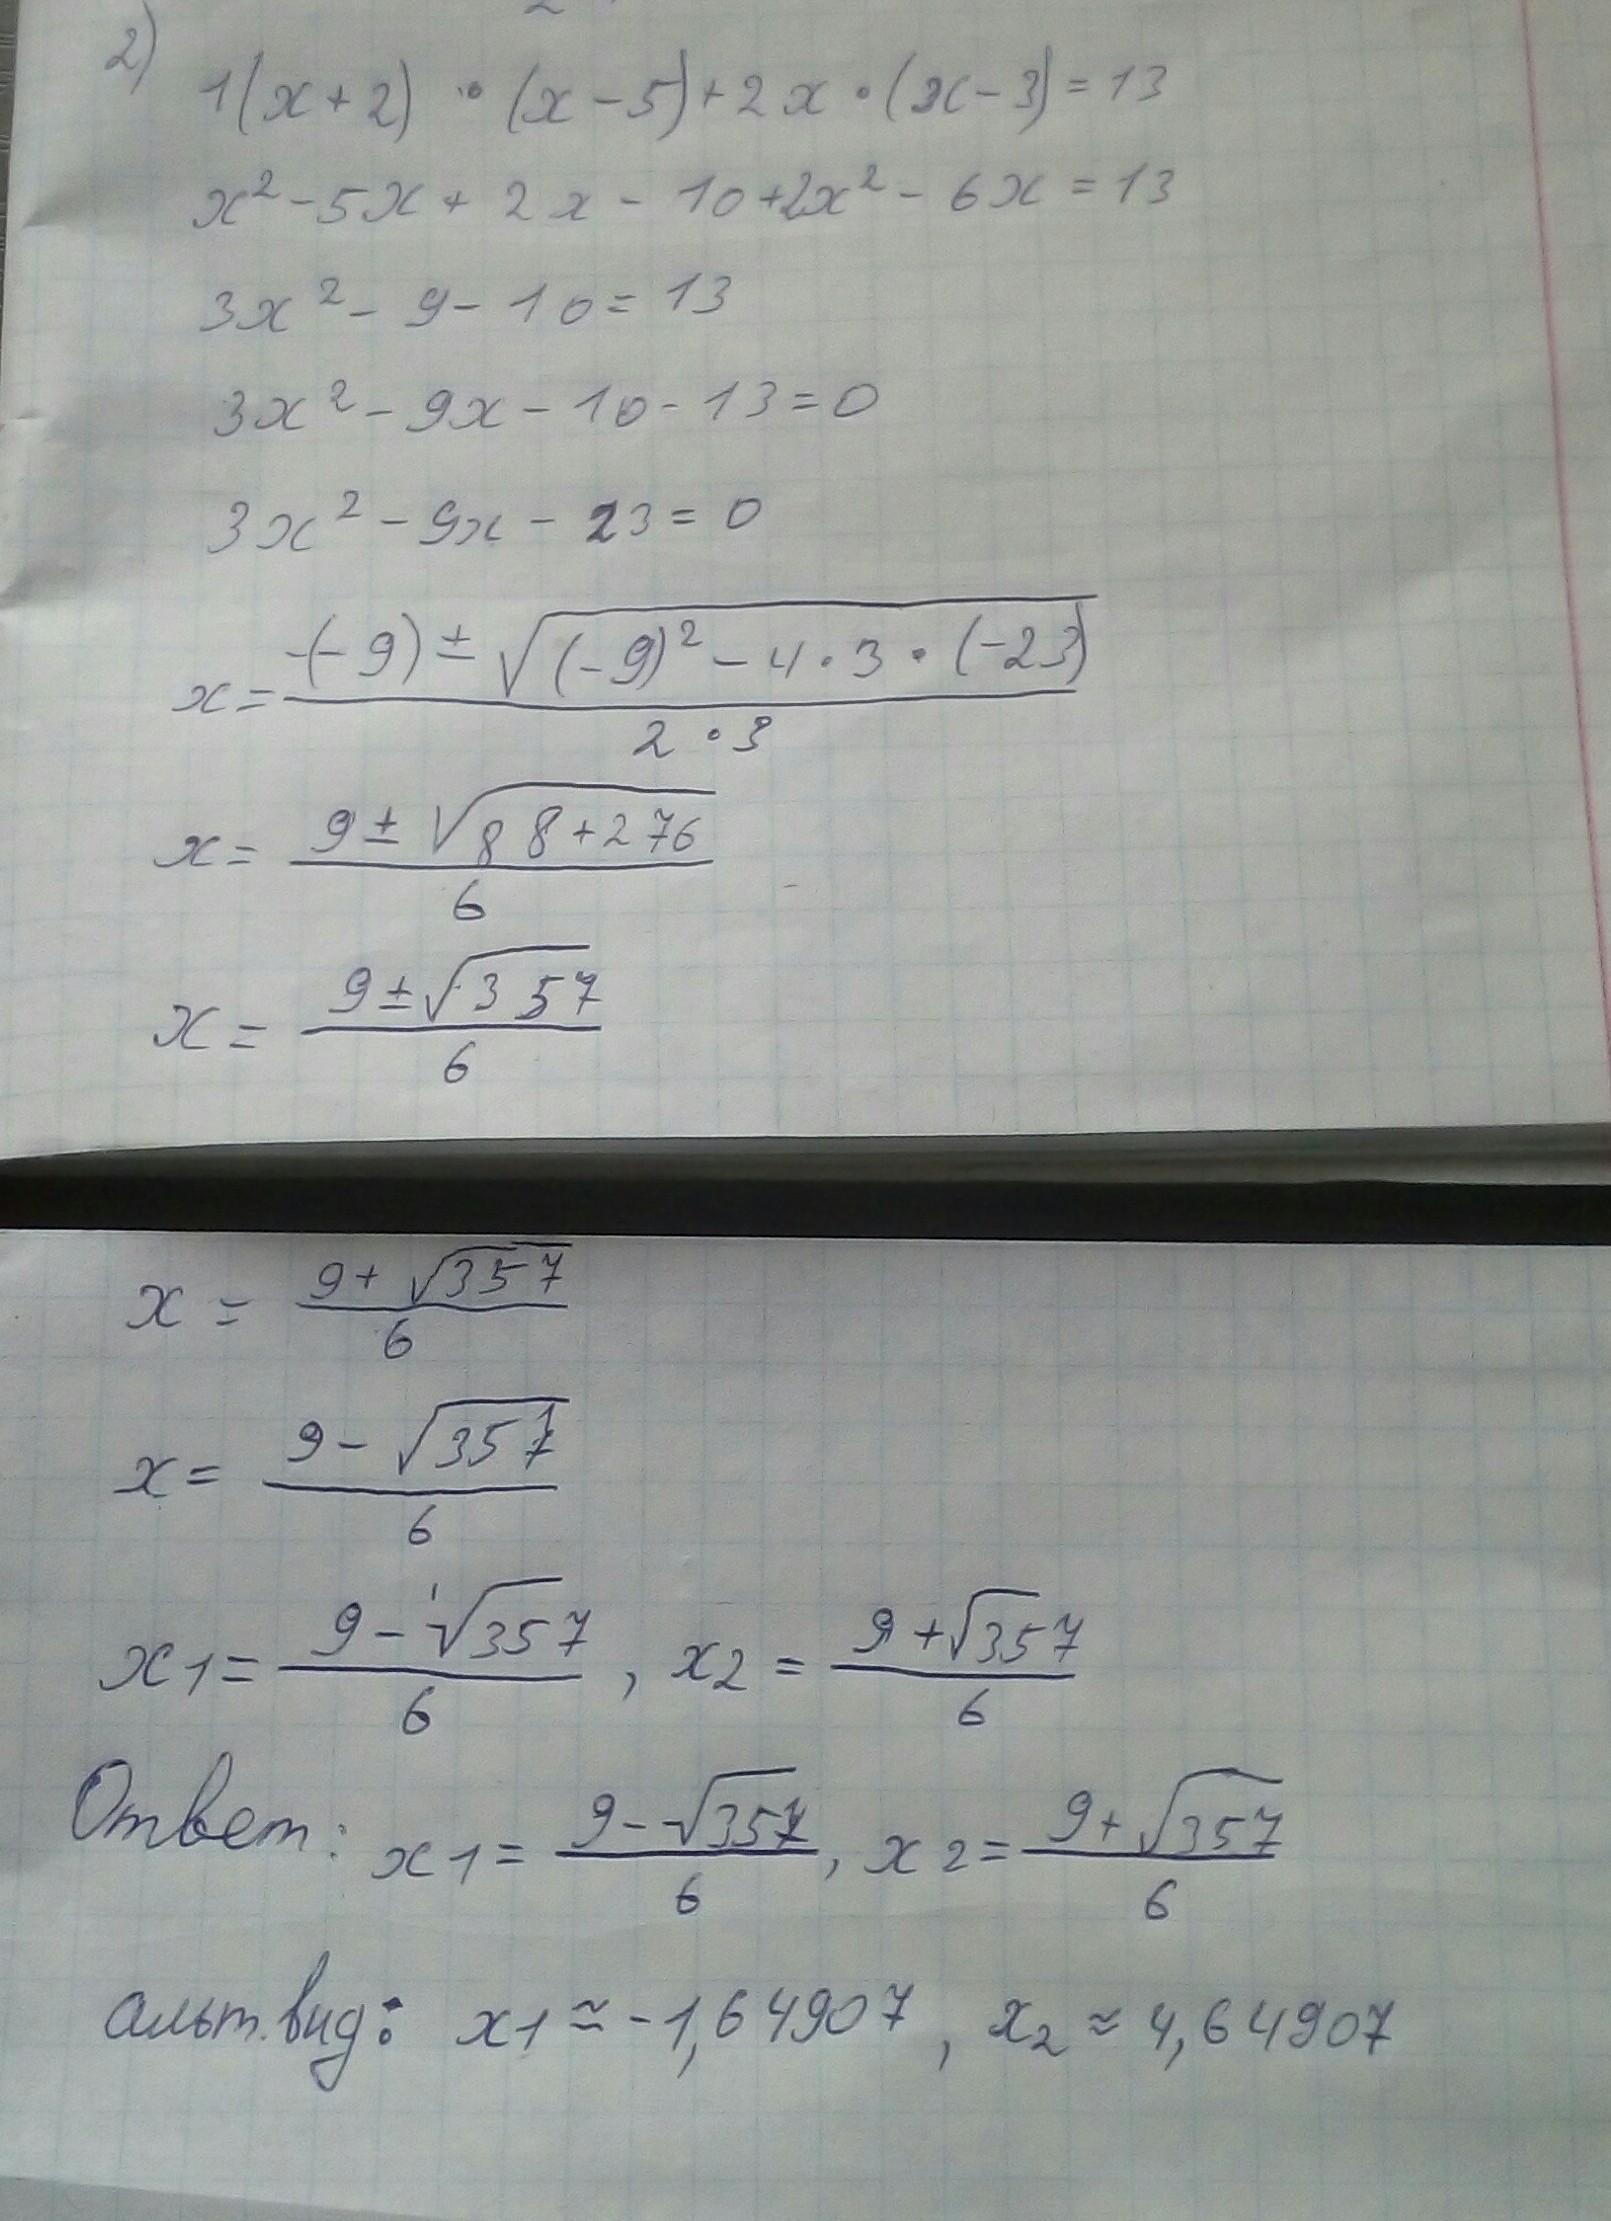 2)
1(x+2) · (x-5)+2x·(x-3)=13
x²-5x+2x-10+2x²-6x=13
3x²-9-10=13
3x²-9x-10-13=0
3x²-9x-23=0
x=(-(-9)±√((-9)²-4·3·(-23)))/(2·3)
x=(9±√(88+276))/6
x=(9±√357)/6
x=(9+√357)/6
x=(9-√357)/6
x1=(9-√357)/6, x2=(9+√357)/6
Ответ: x1=(9-√357)/6, x2=(9+√357)/6
альт.вид: x1≈-1,64907, x2≈4,64907